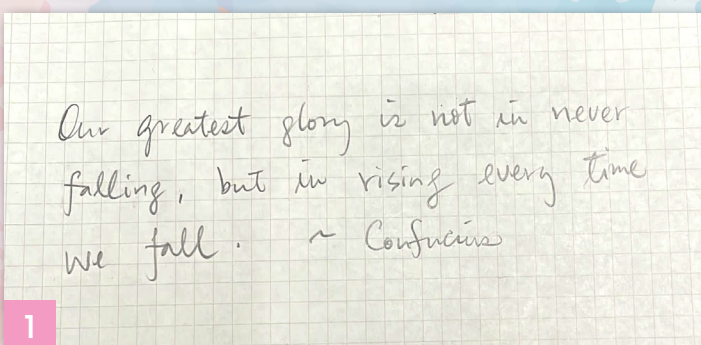 Our greatest glory is not in never
falling, but in rising every time
we fall. ~ Confucius
1